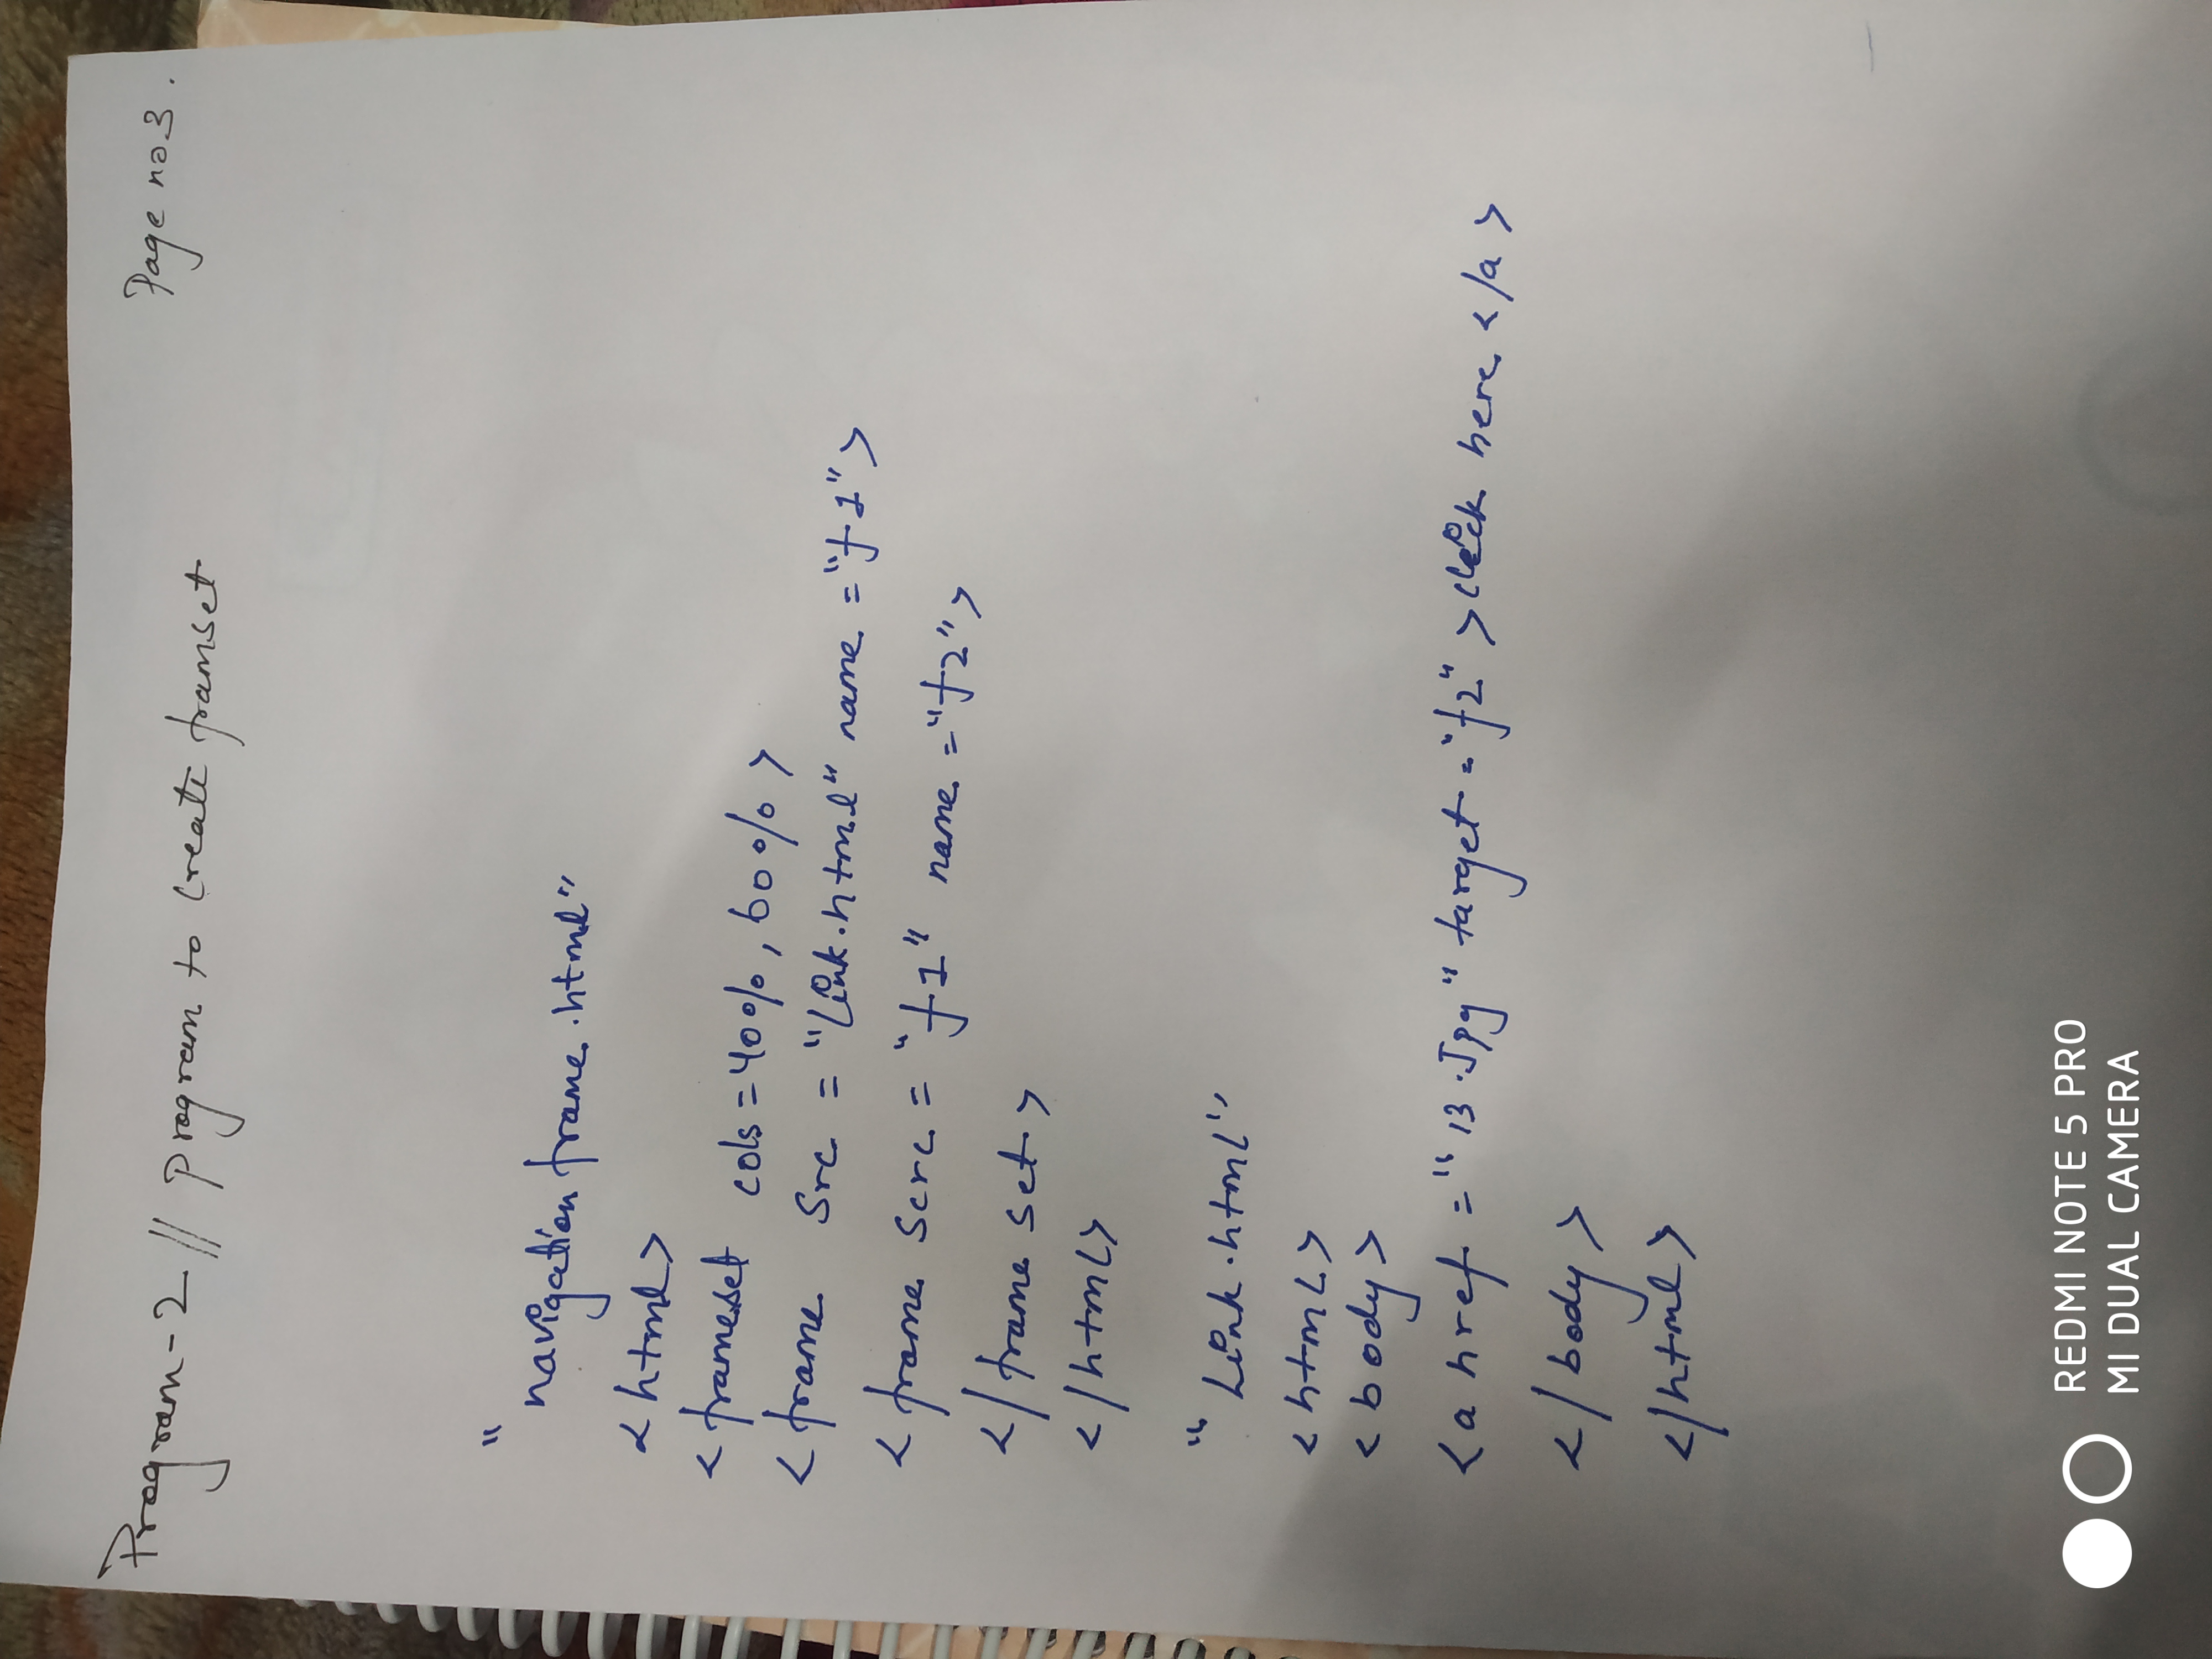 Program-2 // program to create framset
Page no.3.
"navigation frame.html"
<html>
<frameset cols=40%, 60%>
<frame src = "link.html" name = "f1">
<frame scrc = "f1" name = "f2">
</frame set>
</html>
"Link.html"
<html>
<body>
<a href = "13.Jpg" target = "f2" >click here </a>
</body>
</html>
REDMI NOTE 5 PRO
MI DUAL CAMERA